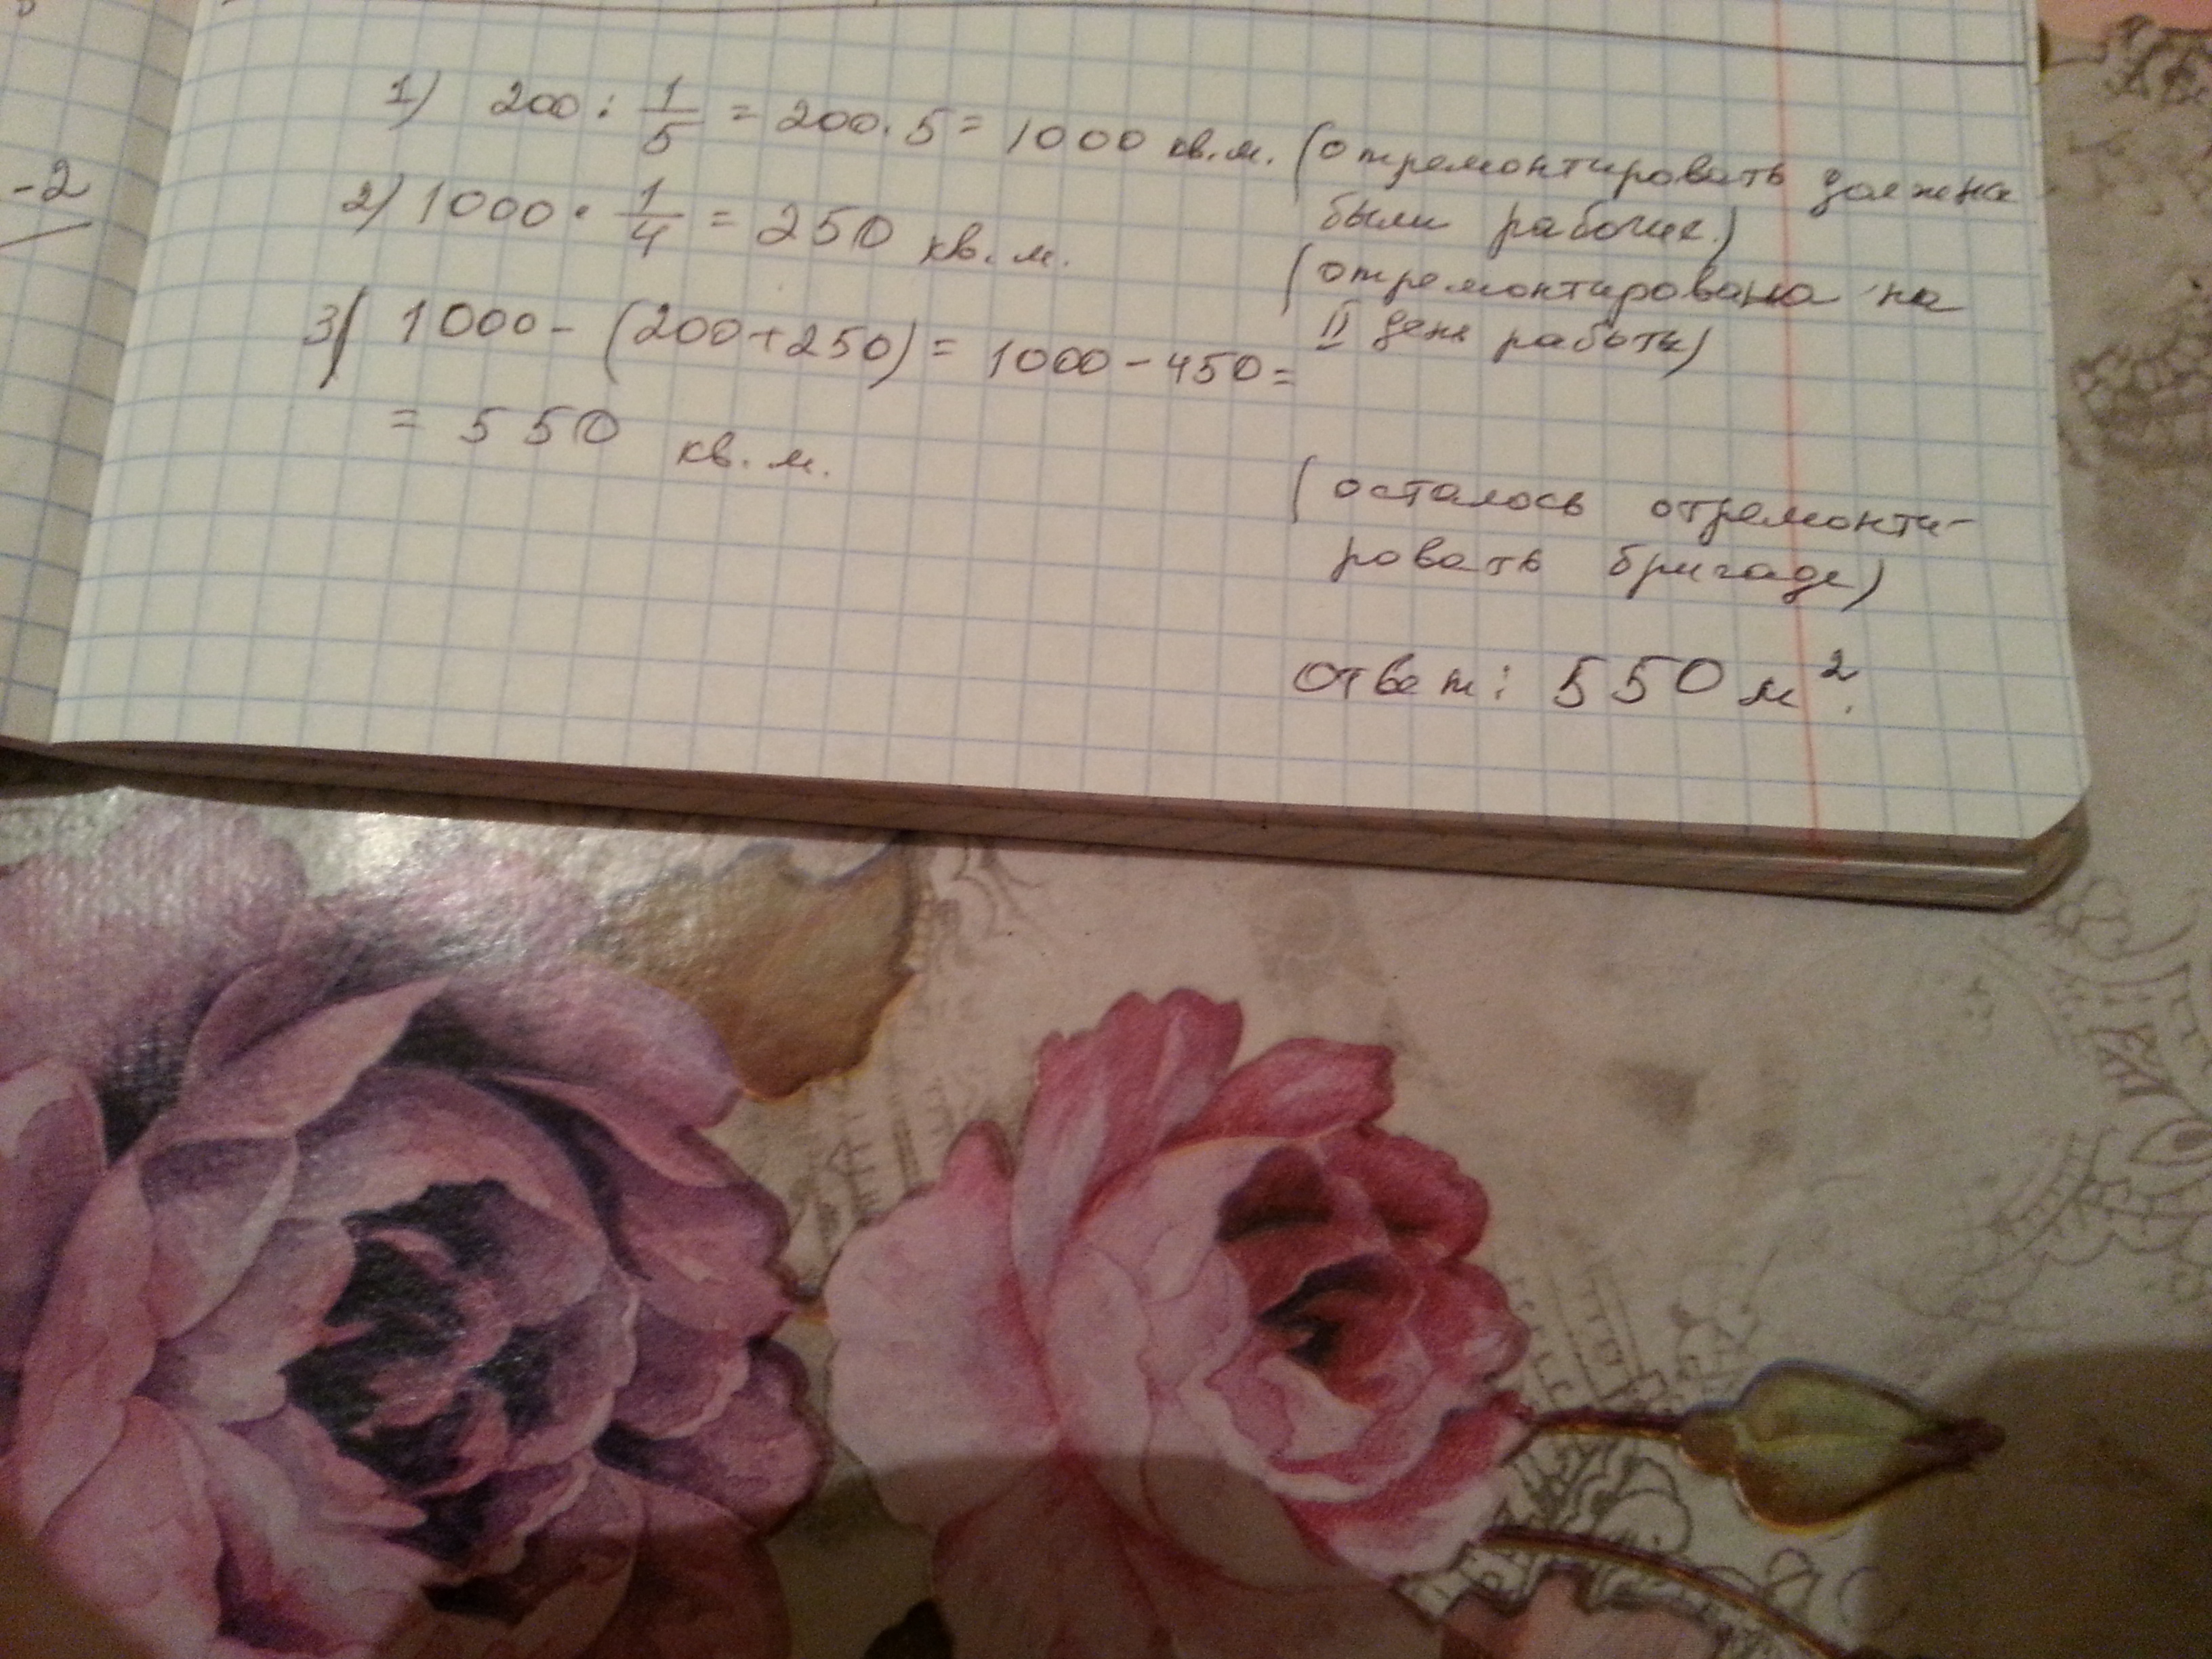 1) 200 : 1/5 = 200 . 5 = 1000 кв. м. (отремонтировать должна
были рабочие.)
-2
2) 1000 · 1/4 = 250 кв. м. (отремонтирована на
II день работы)
3) 1000 - (200 + 250) = 1000 - 450 =
= 550 кв. м.
(осталось отремонти-
ровать бригаде)
Ответ: 550 м².